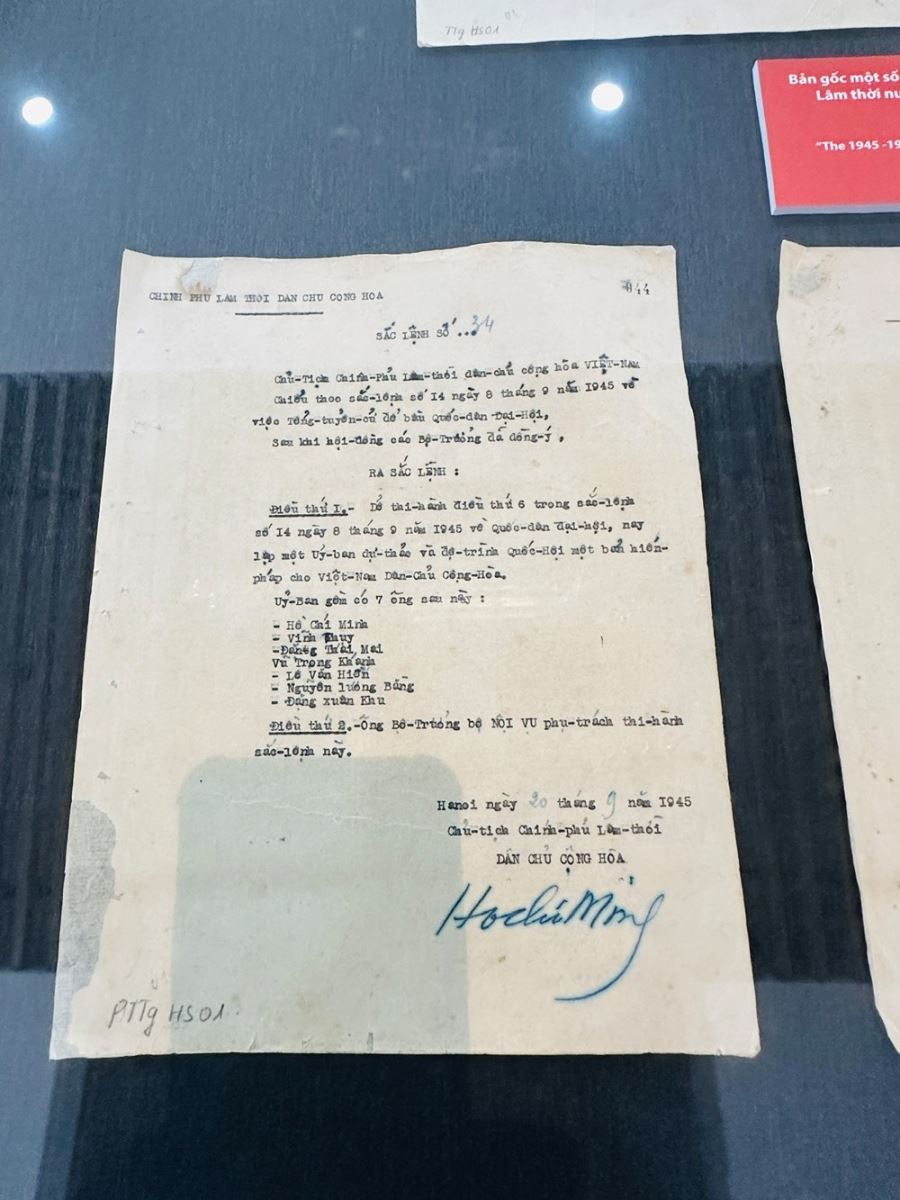 TTg HS01
Bản gốc một số
Lâm thời nư
"The 1945 -19
CHINH PHU LAM THOI DAN CHU CONG HOA
044
SẮC LỆNH SỐ ..34
Chủ-Tịch Chính-Phủ Lâm-thời dân-chủ cộng hòa VIỆT-NAM
Chiểu theo sắc-lệnh số 14 ngày 8 tháng 9 năm 1945 về
việc Tổng-tuyển-cử để bầu Quốc-dân Đại-Hội,
Sau khi hội-đồng các Bộ-Trưởng đã đồng-ý.
RA SẮC LỆNH :
Điều thứ I.- Để thi-hành điều thứ 6 trong sắc-lệnh
số I4 ngày 8 tháng 9 năm I945 về Quốc-dân đại-hội, nay
lập một Uỷ-ban dự-thảo và đệ-trình Quốc-Hội một bản hiến-
pháp cho Việt-Nam Dân-Chủ Cộng-Hòa.
Uỷ-Ban gồm có 7 ông sau này :
- Hồ Chí Minh
- Vĩnh Thuy
-Đang Thái Mai
Vũ Trọng Khánh
- Lê Văn Hiến
- Nguyễn lương Bằng
- Đặng xuân Khu
Điều thứ 2.-Ông Bộ-Trưởng bộ NỘI VỤ phụ-trách thi-hành
sắc-lệnh này.
Hanoi ngày 20 tháng 9 năm I945
Chủ-tịch Chính-phủ Lâm-thời
DÂN CHỦ CỘNG HÒA
HochiMinh
PTTg HS01